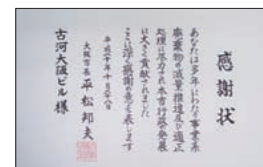 感謝状
あなたは多年にわたり事業系
廃棄物の減量推進及び適正
処理に尽力され本市行政の発展
に大きく貢献されました
ここに深く感謝の意を表します
平成二十年十月二十八日
大阪市長 平松邦夫
古河大阪ビル様